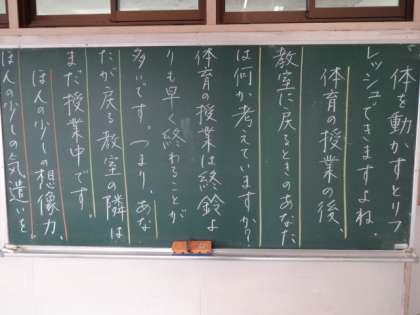 体を動かすとリフ
レッシュできますよね。
体育の授業の後、
教室に戻るときのあなた
は何か考えていますか?
体育の授業は終鈴よ
りも早く終わることが
多いです。つまり、あな
たが戻る教室の隣は
まだ授業中です。
ほんの少しの想像力、
ほんの少しの気遣いを。